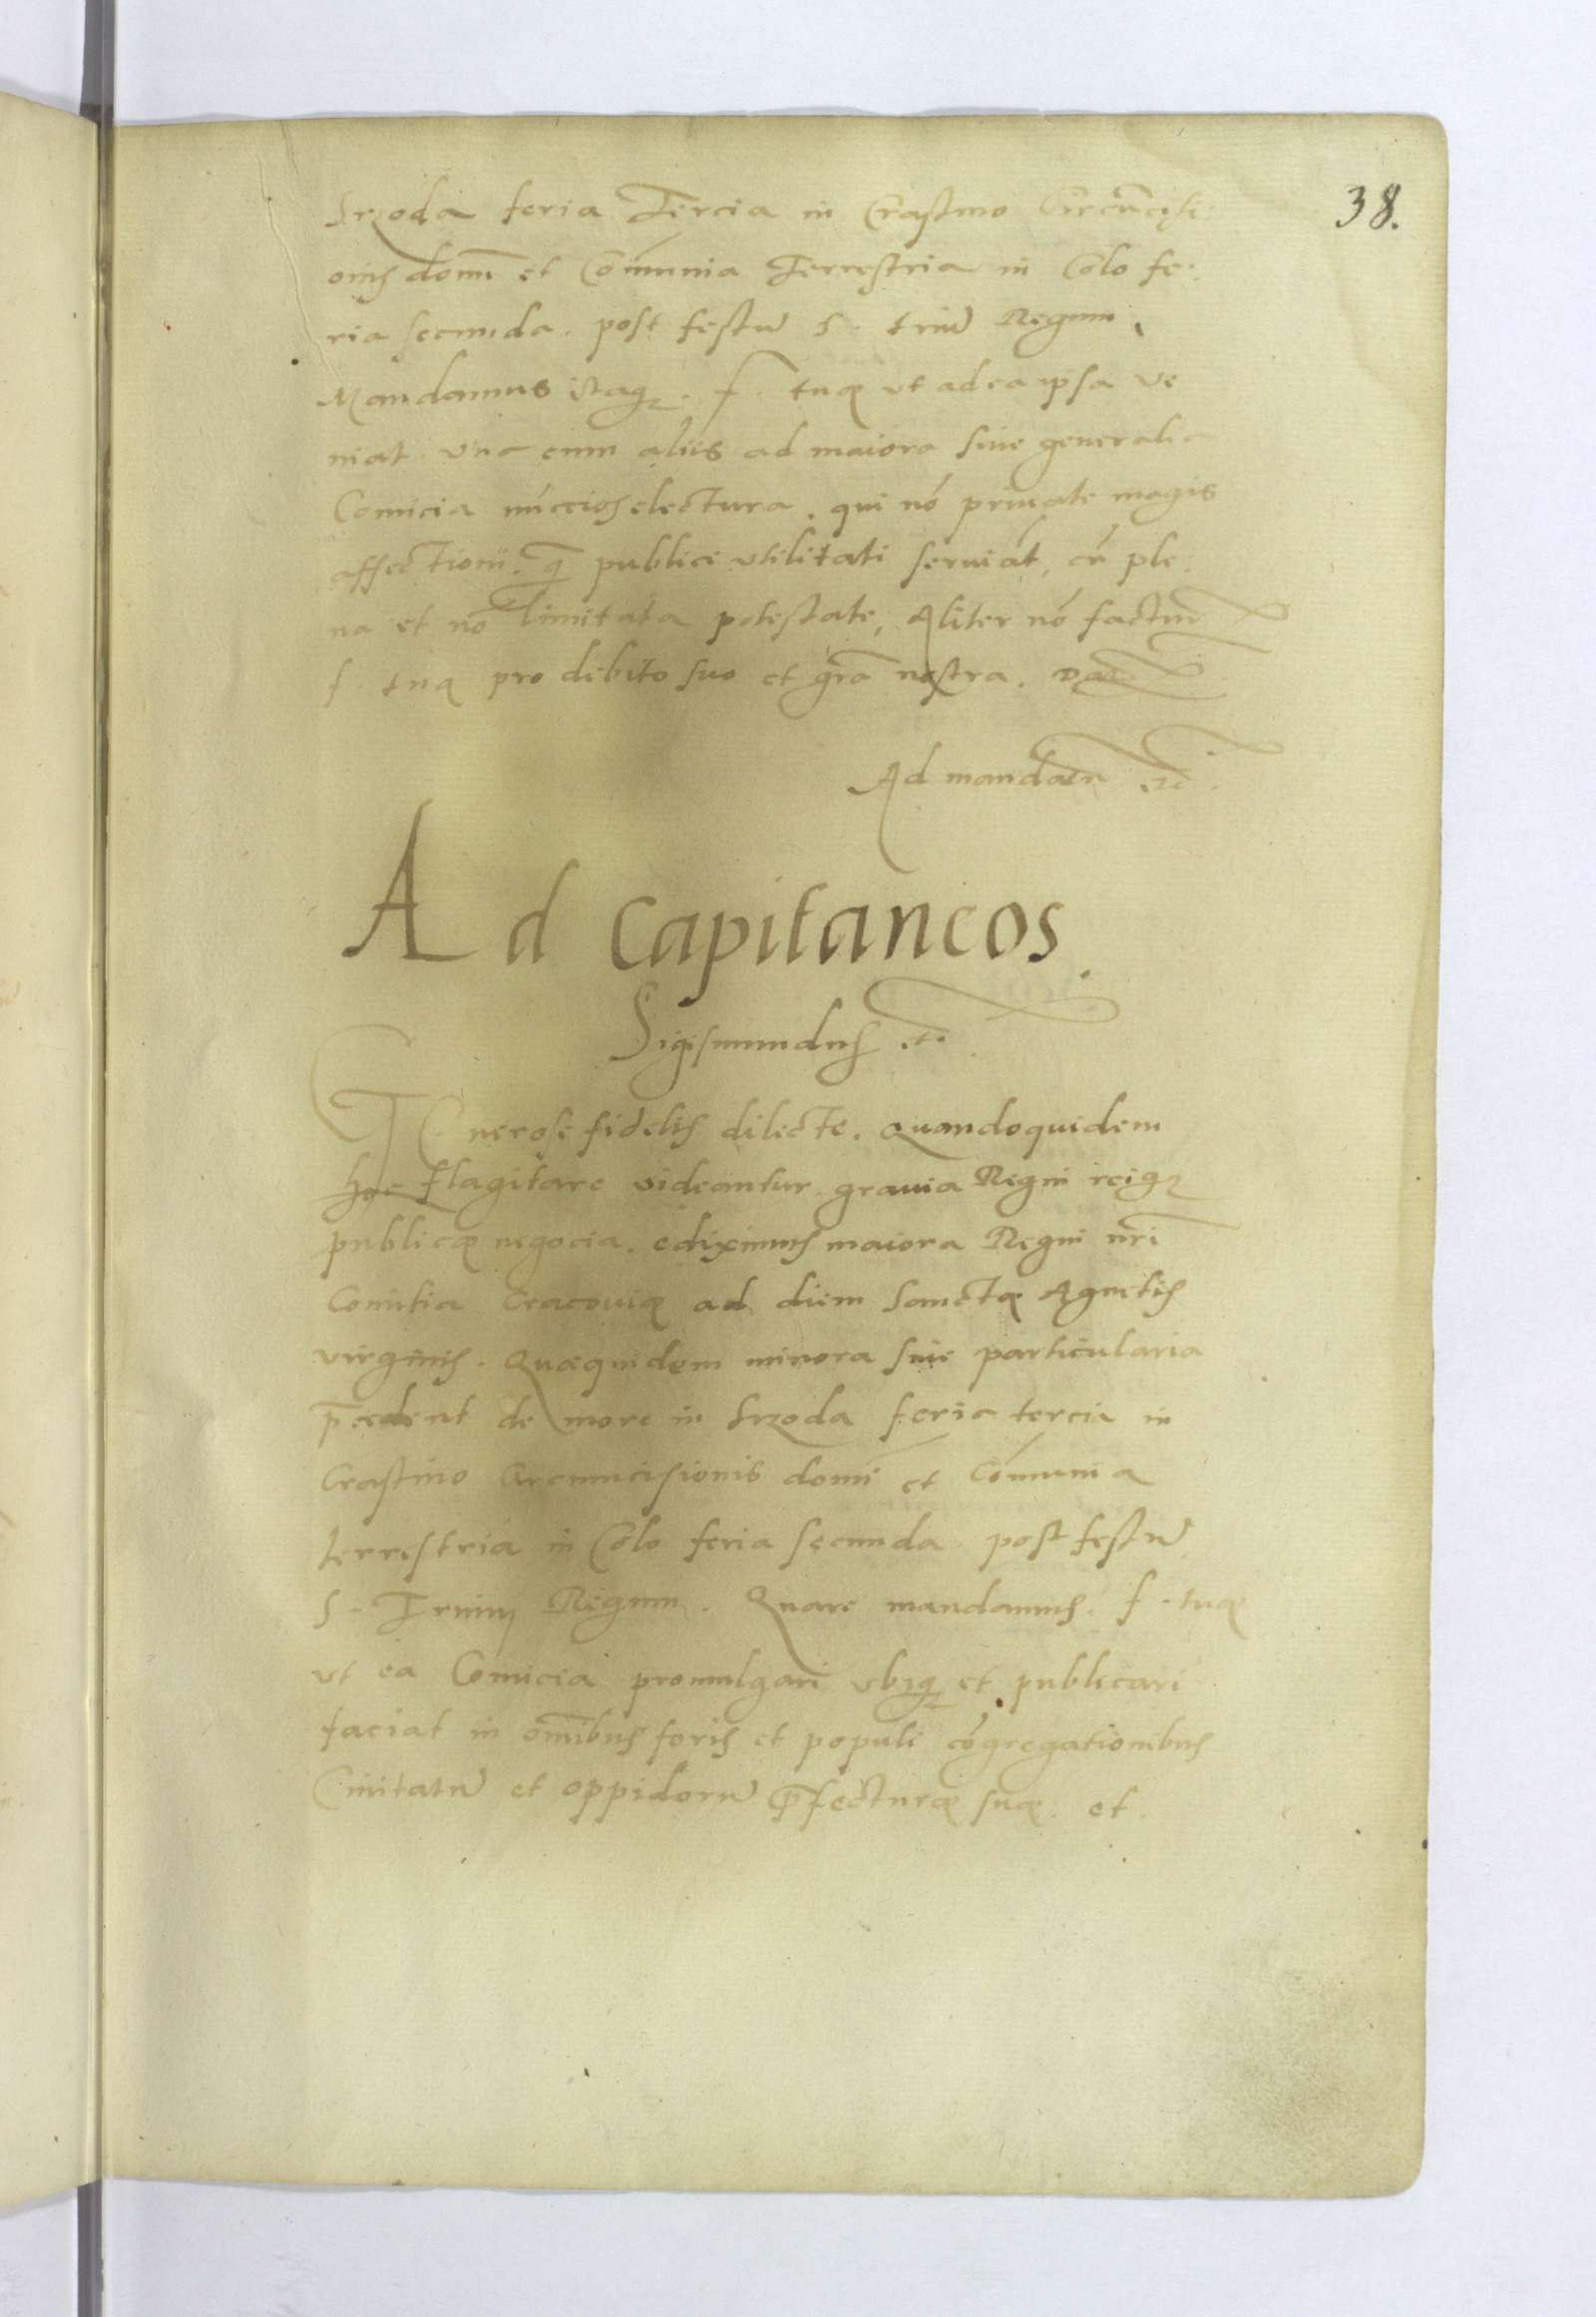 38.
Srzoda feria Tercia in Crastino Circūcisi
onis domī et Cōmunia Terrestria in Colo fe:
ria secunda. post festū S. triū Regum,
Mandamus itaqꝫ. f. tuę vt ad ea ipsa ve
niat vna cum aliis ad maiora siue generalia
Comicia nūccios electura. qui nō priuate magis
affectioni. q̄ publice vtilitati seruiāt, cū ple:
na et nō limitata potestate, Aliter nō factur
f. tuę pro debito suo et grā nostra. Dat
Ad mandatu etc.
Ad Capitaneos.
Sigismundus etc.
Generose fidelis dilecte. Quandoquidem
hoc flagitare videantur grauia Regni reiqꝫ
publicę negocia. ediximus maiora Regni nrī
Comitia Cracouię ad diem Sanctę Agnetis
virginis. Quaequidem minora siue particularia
p̄cedent de more in Srzoda feria tercia in
Crastino Circumcisionis domī et Cōmunia
terrestria in Colo feria secunda post festū
S. Trium Regum. Quare mandamus. f. tuę
vt ea Comicia promulgari vbiqꝫ et publicari
faciat in omībus foris et populi cōgregationibus
Ciuitatū et oppidorū p̄fecturę suę. et.